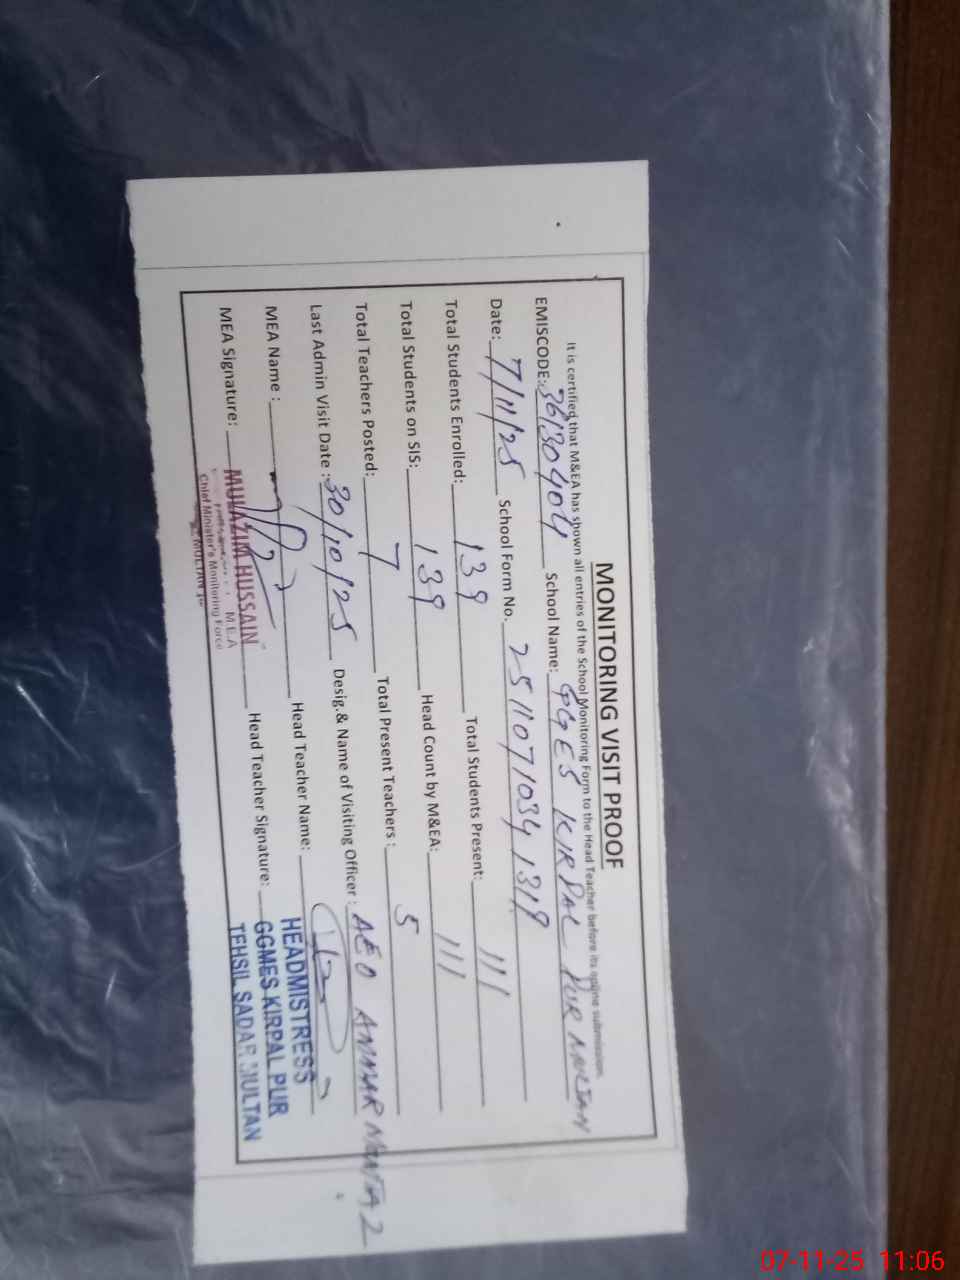 MONITORING VISIT PROOF
It is certified that M&EA has shown all entries of the School Monitoring Form to the Head Teacher before its online submission.
EMISCODE: 36130404 School Name: GGES KIRPAL PUR MULTAN
Date: 7/11/25 School Form No. 25110710341319
Total Students Enrolled: 139 Total Students Present: 111
Total Students on SIS: 139 Head Count by M&EA: 111
Total Teachers Posted: 7 Total Present Teachers: 5
Last Admin Visit Date: 30/10/25 Desig.& Name of Visiting Officer: AEO AMMAR
MEA Name: Head Teacher Name:
MEA Signature: Head Teacher Signature:
MULAZIM HUSSAIN
M.E.A
Chief Minister's Monitoring Force
MULTAN
HEADMISTRESS
GGMES KIRPAL PUR
TEHSIL SADAR MULTAN
07-11-25 11:06